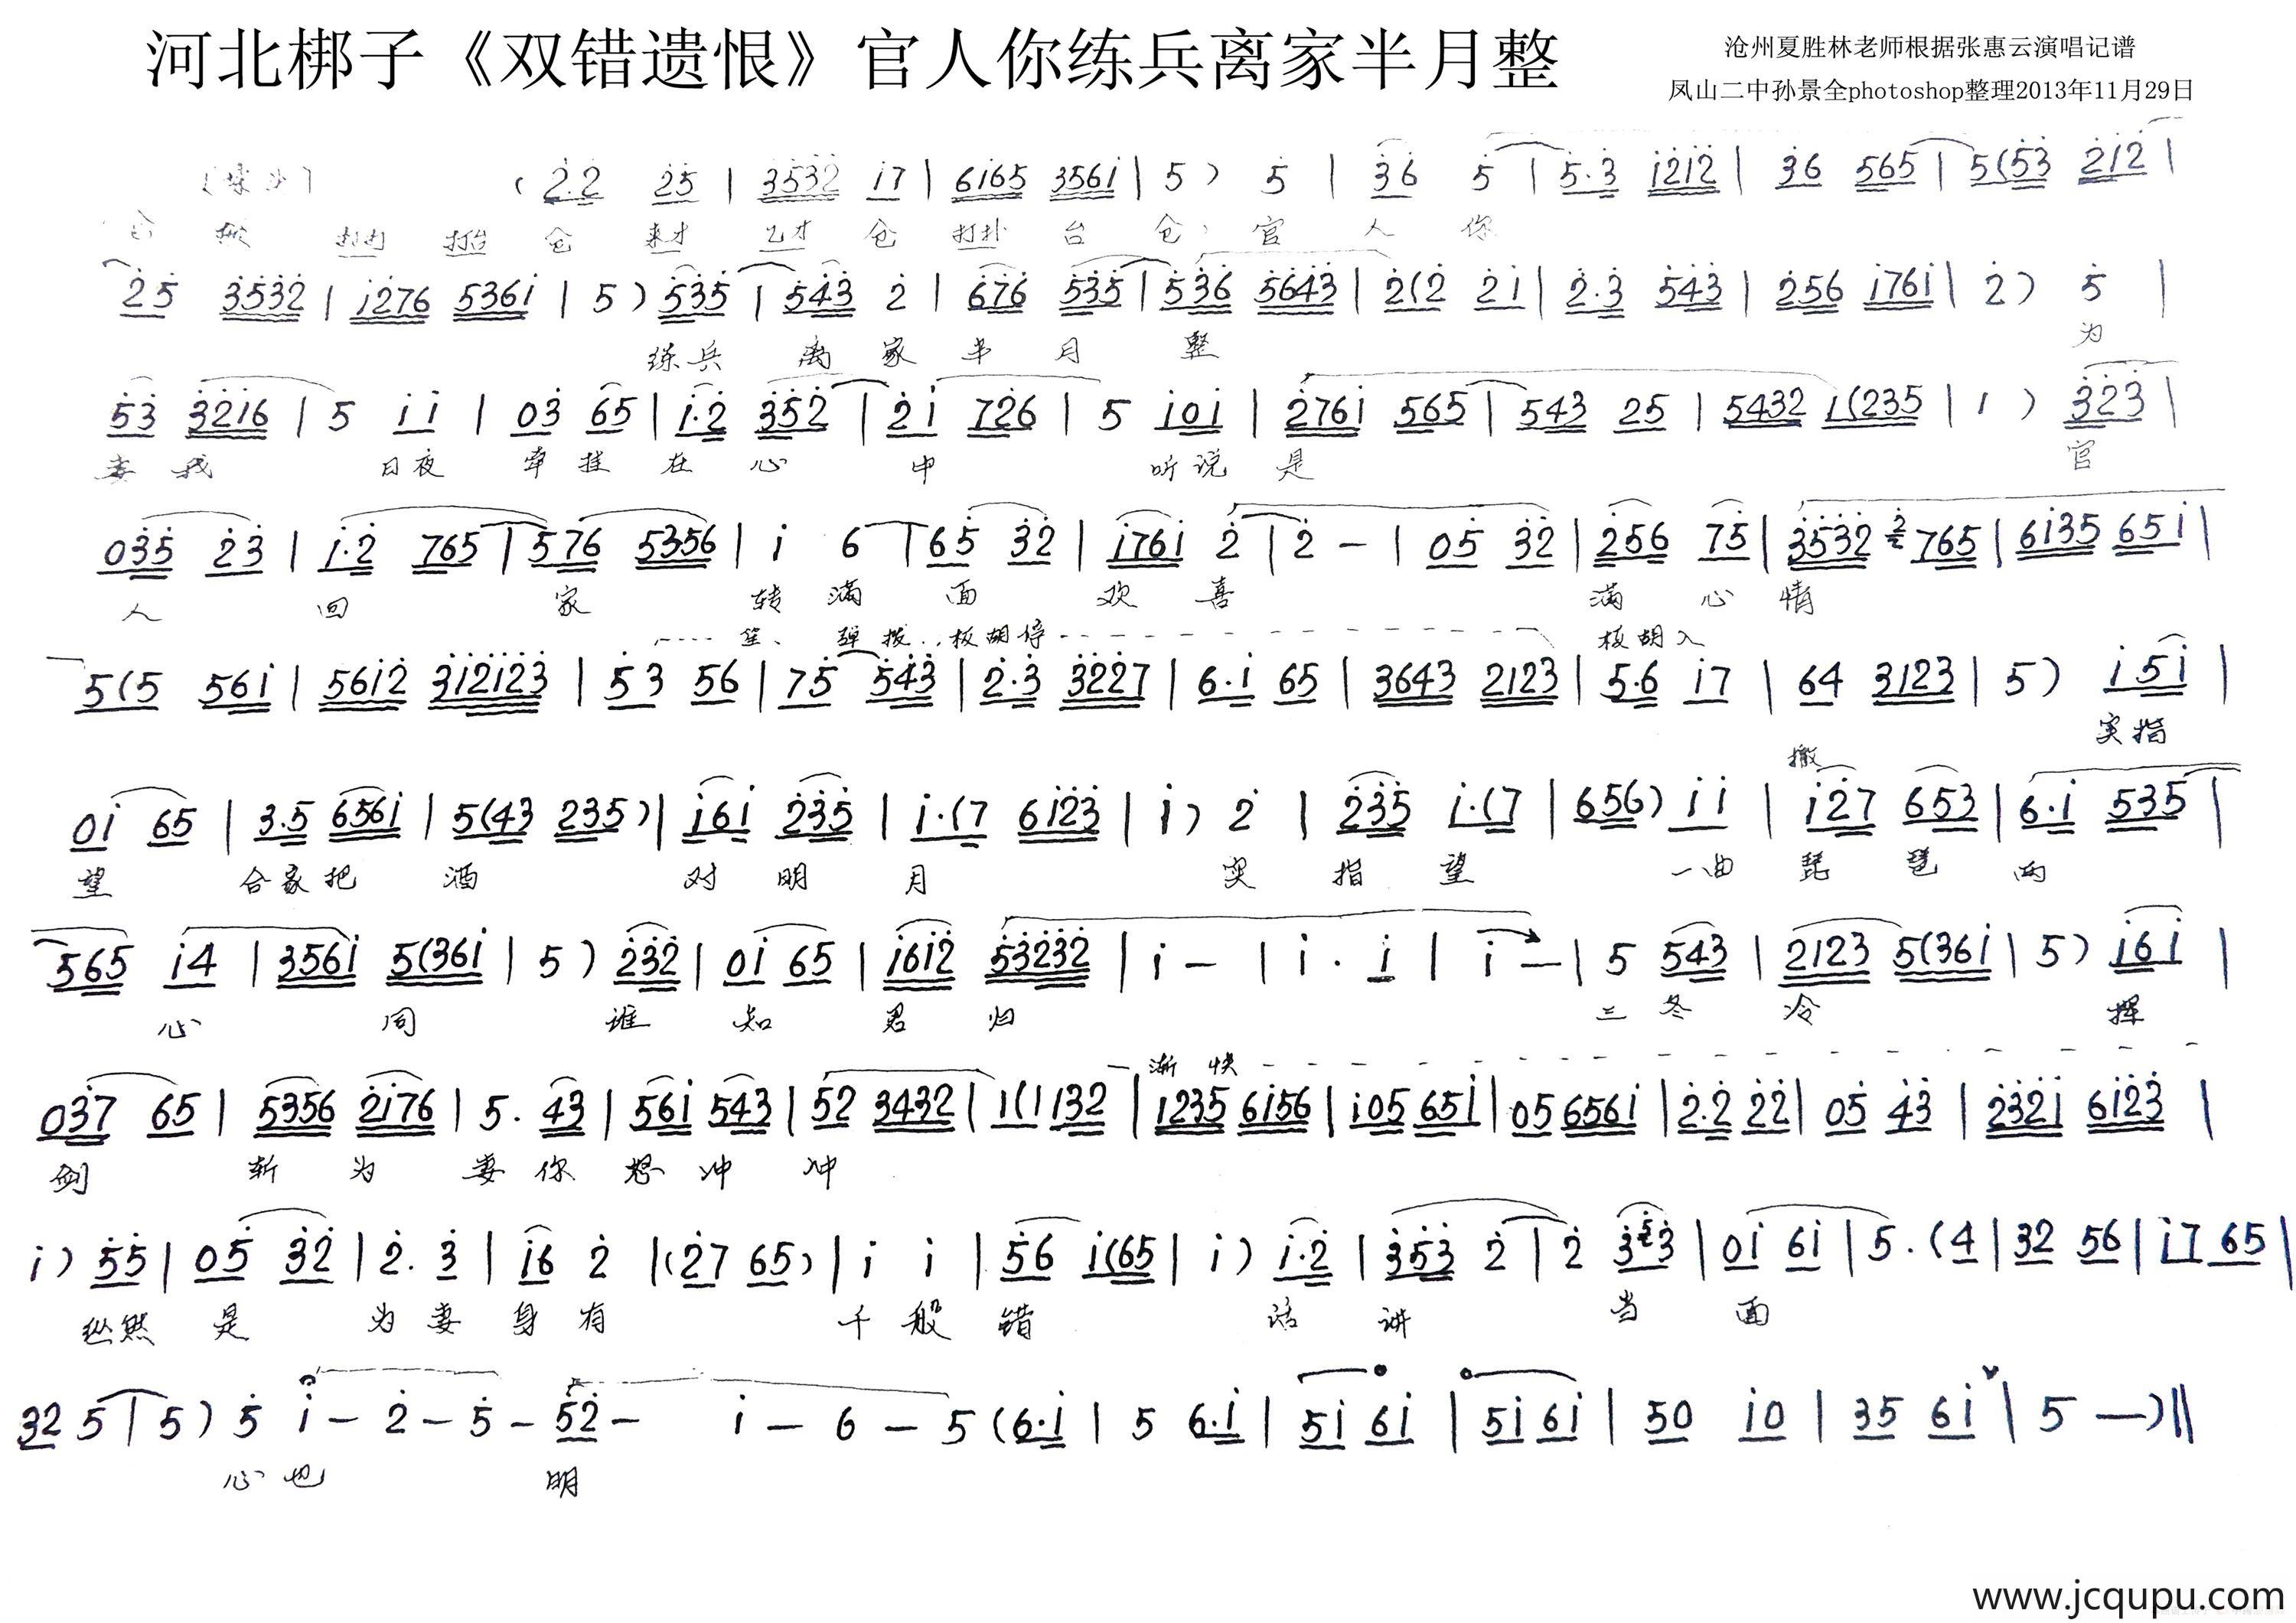 河北梆子《双错遗恨》官人你练兵离家半月整
沧州夏胜林老师根据张惠云演唱记谱
凤山二中孙景全photoshop整理2013年11月29日
(2̇.2̇ 2̇5̇ | 3̇5̇3̇2̇ i7 | 6i65 356i | 5) 5̇ | 3̇6̇ 5̇ | 5̇.3̇ i2̇i2̇ | 3̇6 565 | 5(5̇3̇ 2̇i2̇ |
仓 打打 打台 仓 来才 乙才 仓 打扑 台 仓 官 人 你
2̇5̇ 3̇5̇3̇2̇ | i2̇76 536i | 5) 5̇3̇5̇ | 5̇4̇3̇ 2̇ | 6̇7̇6̇ 5̇3̇5̇ | 5̇3̇6̇ 5̇6̇4̇3̇ | 2̇(2̇ 2̇i | 2̇.3̇ 5̇4̇3̇ | 2̇56 i76i | 2̇) 5̇ |
练兵 离 家 半 月 整 为
5̇3̇ 3̇2̇i6 | 5 i i | 03̇ 65 | i.2̇ 3̇5̇2̇ | 2̇i 72̇6 | 5 i0i | 2̇76i 565 | 543 25 | 5432 1(235 | 1) 3̇2̇3̇ |
妻 我 日夜 牵 挂 在 心 中 听说 是 官
03̇5̇ 2̇3̇ | i.2̇ 765 | 576 5356 | i 6 | 65̇ 3̇2̇ | i76i 2̇ | 2̇ - | 05̇ 3̇2̇ | 2̇56 75̇ | 3̇5̇3̇2̇ 765 | 6i35 65i |
人 回 家 转 满 面 欢 喜 满 心 情
笙、弹拨..板胡停 板胡入
5(5 56i | 56i2̇ 3̇i2̇i2̇3̇ | 5̇3 56 | 75̇ 5̇4̇3̇ | 2̇.3̇ 3̇2̇2̇7 | 6.i 65 | 3643 2123 | 5.6 i7 | 64 3123 | 5) i5̇i |
实指
撤
0i 65 | 3.5 656i | 5(43 235) | i6i 2̇3̇5̇ | i.(7 6i2̇3̇ | i) 2̇ | 2̇3̇5̇ i.(7 | 656) i i | i2̇7 653 | 6.i 535 |
望 合家把 酒 对 明 月 实 指 望 一曲 琵 琶 两
565 i4 | 356i 5(36i | 5) 2̇3̇2̇ | 0i 65 | i6i2̇ 5̇3̇2̇3̇2̇ | i - | i . i | i - | 5 543 | 2123 5(36i | 5) i6i |
心 同 谁 知 君 归 三 冬 冷 挥
渐 快
03̇7 65 | 5356 2̇i76 | 5. 43 | 56i 543 | 52 3432 | 1(1 132 | 1235 6i56 | i05 65i | 05 656i | 2̇.2̇ 2̇2̇ | 05̇ 4̇3̇ | 2̇3̇2̇i 6i2̇3̇ |
剑 斩 为 妻 你 怒 冲 冲
i) 5̇5̇ | 05̇ 3̇2̇ | 2̇. 3̇ | i6 2̇ | (2̇7 65) | i i | 5̇6 i(65 | i) i.2̇ | 3̇5̇3̇ 2̇ | 2̇ 3̇3̇ | 0i 6i | 5. (4 | 32 56 | i7 65 |
纵然 是 为 妻 身 有 千 般 错 话 讲 当 面
32 5 | 5) 5̇ i - 2̇ - 5̇ - 5̇2̇ - i - 6 - 5 (6.i | 5 6.i | 5i 6i | 5i 6i | 50 i0 | 35 6i | 5 —)‖
心 也 明
www.jcqupu.com